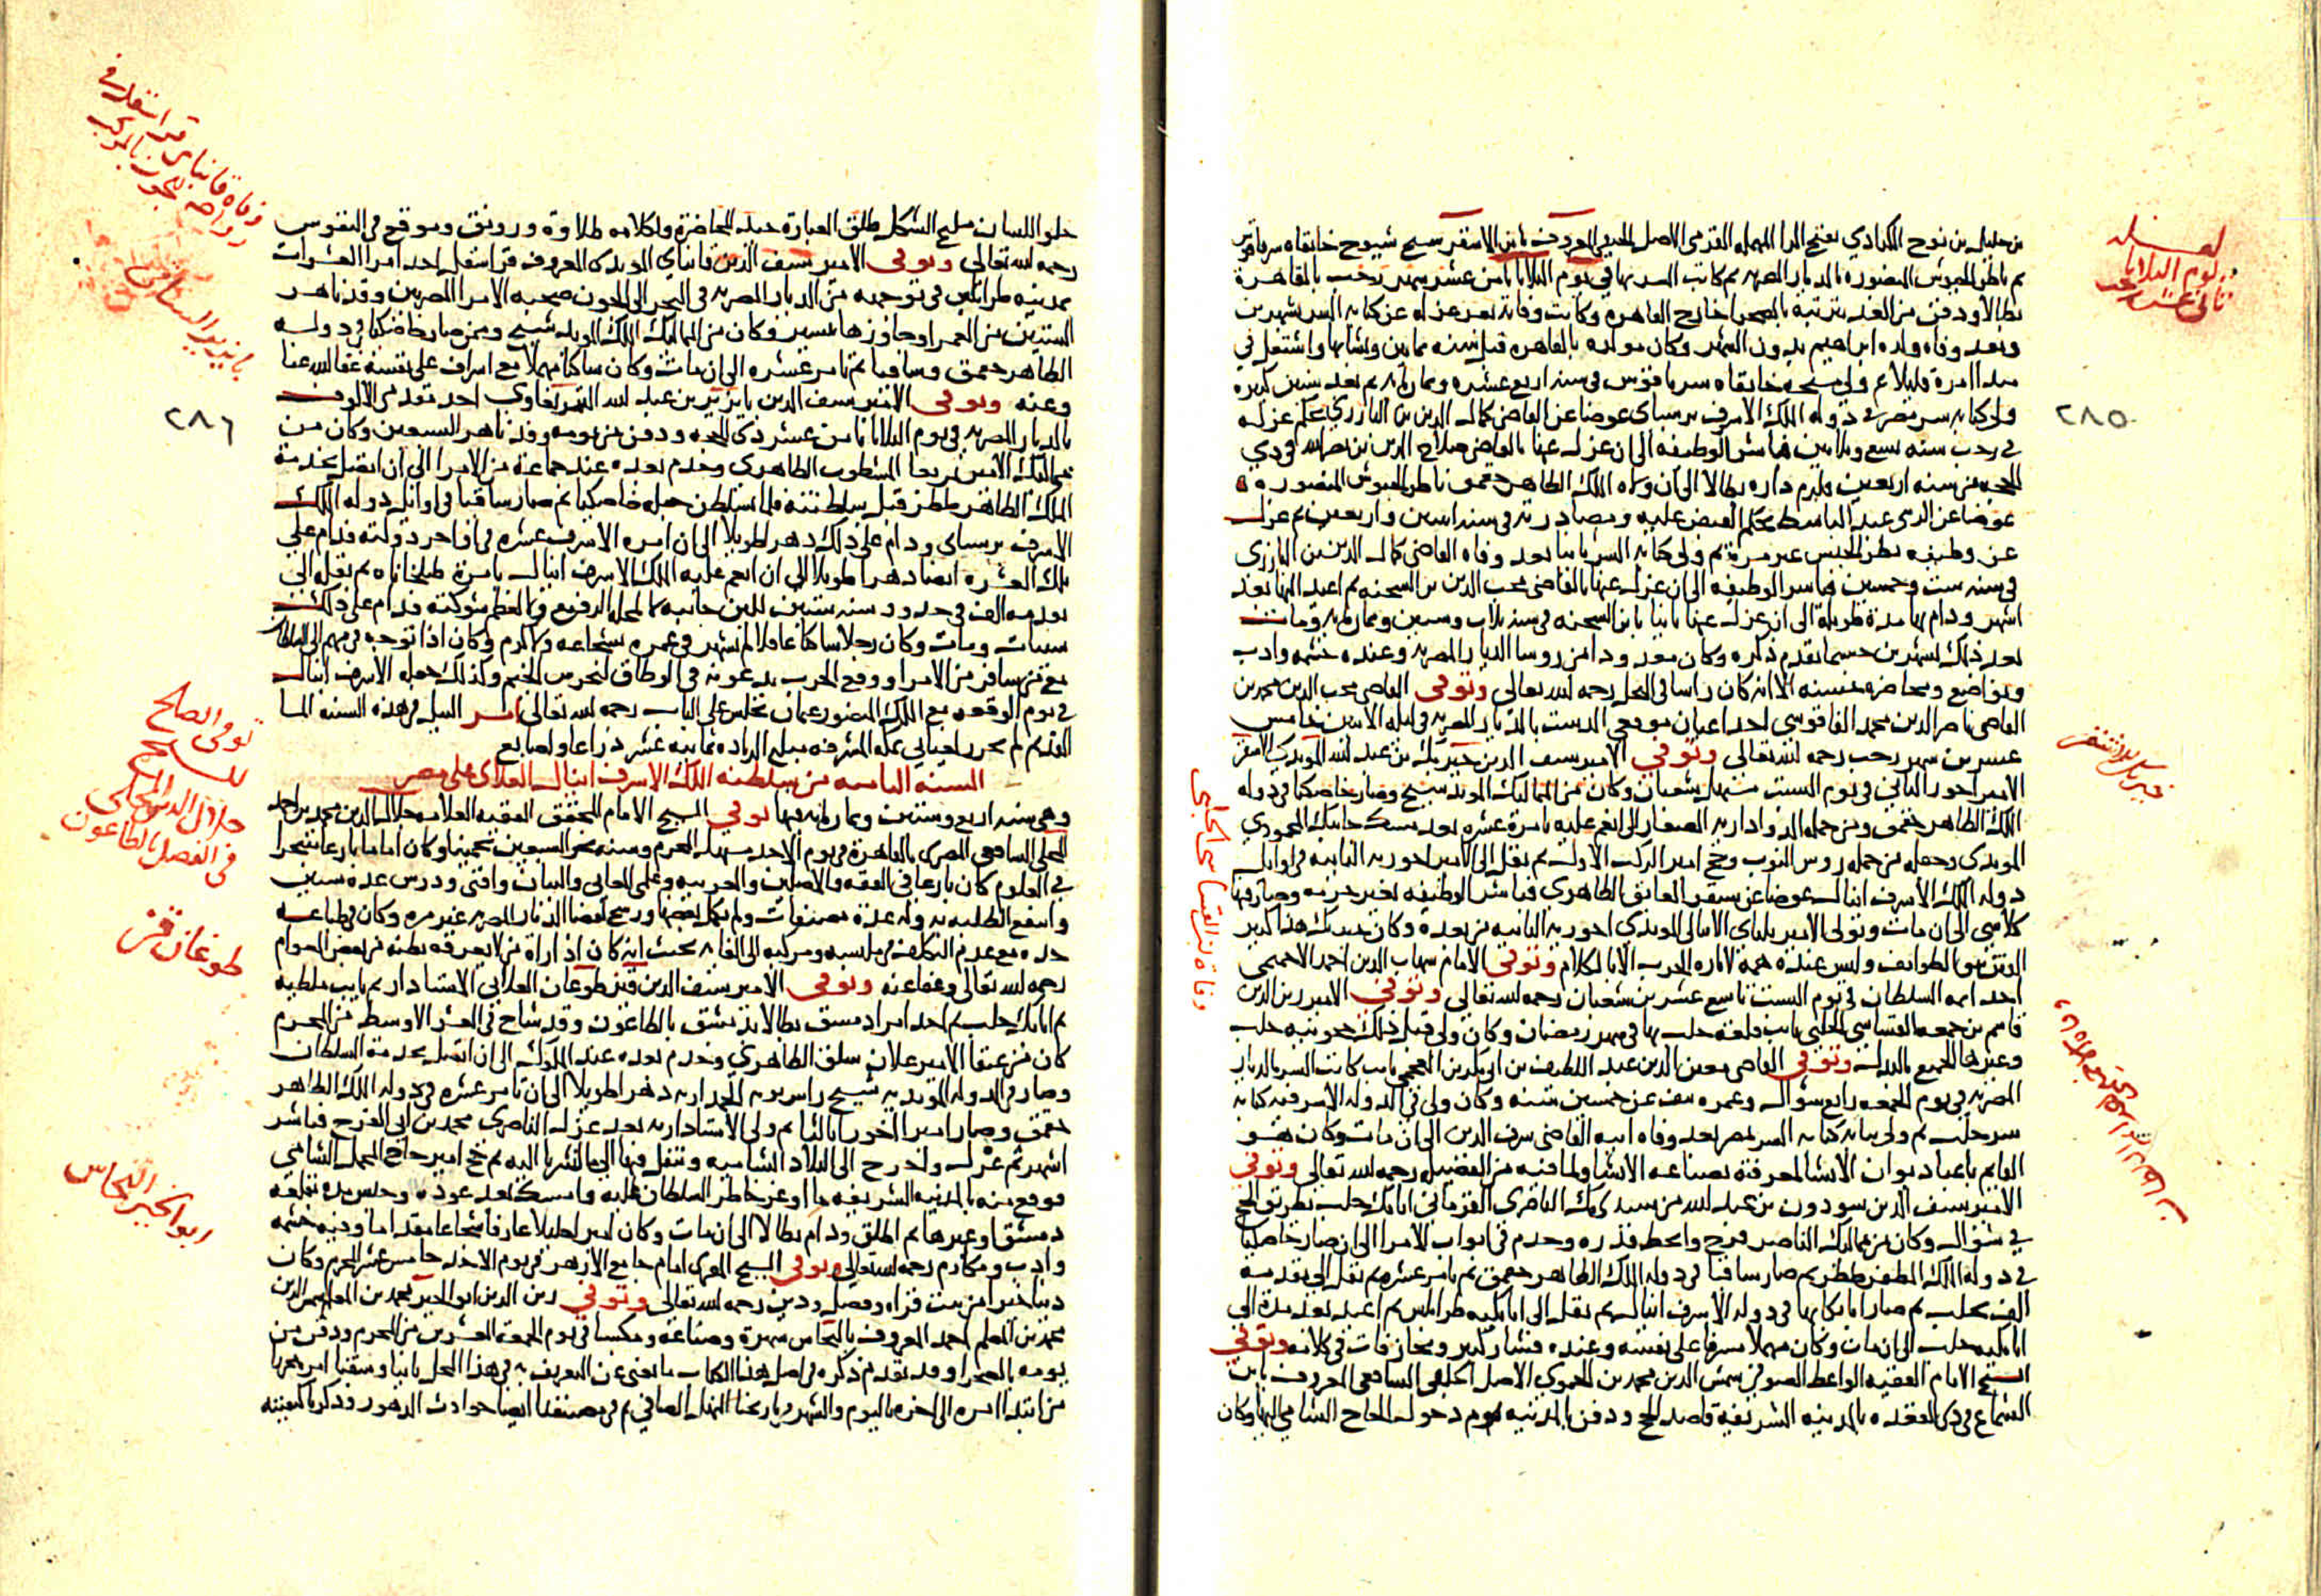 لعله
يوم الثلاثا
ثاني عشر رجب
٢٨٥
بن خليل بن نوح الكرادي بفتح الرا المهمله القرمي الاصل الحنفي المعروف بابن الاشقر شيخ شيوخ خانقاه سرياقوس
ثم ناظر الجيوش المنصوره بالديار المصريه ثم كاتب السر بها في يوم الثلاثا ثامن عشر شهر رجب بالقاهرة
بطالا ودفن من الغد بتربته بالصحرا خارج القاهره وكانت وفاته بعد عزله عن كتابه السر بشهرين
وبعد وفاه ولده ابراهيم بدون الشهر وكان مولده بالقاهره قبل سنه ثمانين ونشا بها واشتغل في
مبدا امره قليلا ثم ولي مشيخه خانقاه سرياقوس في سنه اربع عشره وثمان مايه ثم بعد سنين كثيره
ولي كتابه سر مصر في دوله الملك الاشرف برسباى عوضا عن القاضي كمال الدين بن البارزي بحكم عزله
في رجب سنه تسع وثلاثين فباشر الوظيفه الى ان عزل عنها بالقاضي صلاح الدين بن نصر الله في ذي
الحجه من سنه اربعين ولزم داره بطالا الى ان ولاه الملك الظاهر جقمق ناظر الجيوش المنصوره
عوضا عن الزيني عبد الباسط بحكم القبض عليه ومصادرته في سنه اثنين واربعين ثم عزل
عن وظيفه نظر الجيش غير مرة ثم ولي كتابه السر ثانيا بعد وفاه القاضي كمال الدين بن البارزى
في سنه ست وخمسين فباشر الوظيفه الى ان عزل عنها بالقاضي محب الدين بن الشحنه ثم اعيد اليها بعد
اشهر ودام بها مدة طويلة الى ان عزل عنها ثانيا بابن الشحنه في سنه ثلاث وستين وثمان مايه ومات
بعد ذلك بشهرين حسبما تقدم ذكره وكان معدودا من روسا الديار المصريه وعنده حشمه وادب
وتواضع ومحاضره حسنه الا انه كان راسا في البخل رحمه الله تعالى وتوفى القاضي محب الدين محمد بن
القاضي ناصر الدين محمد الفاقوسي احد اعيان موقعي الدست بالديار المصريه في ليله الاثنين خامس
عشرين شهر رجب رحمه الله تعالى وتوفي الامير سيف الدين خير بك بن عبد الله المويدى الاشقر
الامير اخور الثاني في يوم السبت مستهل شعبان وكان من المماليك المويد شيخ وصار خاصكيا في دوله
الملك الظاهر جقمق ومن جمله الدواداريه الصغار الى انعم عليه بامرة عشره بعد مسك جانبك المحمودي
المويدى وجعله من جمله روس النوب وحج امير الركب الاول ثم نقل الى الامير اخوريه الثانيه في اوايل
دوله الملك الاشرف اينال عوضا عن سنقر العايق الظاهري فباشر الوظيفه بغير حرمه وصار فيها
كلاشي الى ان مات وتولى الامير يلباى الاينالى المويدي اخوريه الثانيه من بعده وكان خيربك هذا كثير
احد ايمه السلطان في يوم السبت تاسع عشرين شعبان رحمه الله تعالى وتوفي الامير زين الدين
قاسم بن جمعه القساسي الحلبي نايب قلعه حلب بها في شهر رمضان وكان ولي قبل ذلك حجوبيه حلب
وغيرها الجميع بالبذل وتوفي القاضي معين الدين عبد اللطيف بن ابى بكر بن العجمي نايب كاتب السر بالديار
المصريه في يوم الجمعه رابع شوال وعمره نيف عن خمسين سنه وكان ولي في الدوله الاشرفيه كتابه
سر حلب ثم ولي نيابه كتابه السر بمصر بعد وفاه ابيه القاضي شرف الدين الى ان مات وكان هو
القايم باعبا ديوان الانشا لمعرفته بصناعه الانشا ولما فيه من الفضيله رحمه الله تعالى وتوفي
الامير سيف الدين سودون بن عبد الله من سيدى بك الناصري القرماني اتابك حلب بطريق الحج
في شوال وكان من مماليك الناصر فرج وانحط قدره وخدم في ابواب الامرا الى ان صار خاصكيا
في دوله الملك المظفر ططر ثم صار ساقيا في دوله الملك الظاهر جقمق ثم تامر عشره ثم نقل الى تقدمه
الف بحلب ثم صار اتابكا بها في دوله الاشرف اينال ثم نقل الى اتابكيه طرابلس ثم اعيد بعد مدة الى
اتابكيه حلب الى ان مات وكان مهملا مسرفا على نفسه وعنده فشار كبير ومجازفات في كلامه وتوفي
الشيخ الامام الفقيه الواعظ الصوفي شمس الدين محمد بن الحموي الاصل الحلبي الشافعي المعروف بابن
الشماع في ذى القعده بالمدينه الشريفة قاصد الحج ودفن بالمدينه يوم دخول الحاج الشامي اليها وكان
خيربك الاشقر
وفاة ابن القساسي الحلبي
٢٨٦
حلو اللسان مليح الشكل طلق العبارة جيد المحاضرة ولكلامه طلاوة ورونق وموقع في النفوس
رحمه الله تعالى وتوفى الامير سيف الدين قانباى المويدى المعروف قرا سقل احد امرا العشرات
بمدينه طرابلس في توجهه من الديار المصريه في البحر الى الجون صحبه الامرا المصريين وقد ناهز
الستين من العمر او جاوزها بيسير وكان من المماليك الملك المويد شيخ وممن صار خاصكيا في دوله
الظاهر جقمق وساقيا ثم تامر عشره الى ان مات وكان ساكنا مهملا مع اسراف على نفسه عفا الله عنا
وعنه وتوفى الامير سيف الدين بايزيد بن عبد الله التمربغاوي احد مقدمى الالوف
بالديار المصريه في يوم الثلاثا ثامن عشر ذى الحجه ودفن من يومه وقد ناهز السبعين وكان من
مماليك الامير تمربغا المشطوب الظاهرى وخدم بعده عند جماعة من الامرا الى ان اتصل بخدمة
الملك الظاهر ططر قبل سلطنته فلما تسلطن جعله خاصكيا ثم صار ساقيا في اوايل دوله الملك
الاشرف برسباى ودام على ذلك دهرا طويلا الى ان امره الاشرف عشره في اواخر دولته فدام على
تلك العشره ايضا دهرا طويلا الى ان انعم عليه الملك الاشرف اينال بامرة طبلخاناه ثم نقله الى
تقدمه الف في حدود سنه ستين للين جانبه لا لمحله الرفيع ولا لعظم شوكته فدام على ذلك
سنيات ومات وكان رجلا ساكنا عاقلا لم يشهر في عمره بشجاعه ولا كرم وكان اذا توجه في مهم الى البلاد
مع من سافر من الامرا ووقع الحرب يدعونه في الوطاق لحرس الخيم وكذلك جعله الاشرف اينال
في يوم الوقعه مع الملك المنصور عثمان يجلس على الباب رحمه الله تعالى امر النيل في هذه السنه الما
القديم لم يحرر لغيابي بمكه المشرفه مبلغ الزياده ثمانيه عشر ذراعا واصابع
السنه الثامنه من سلطنه الملك الاشرف اينال العلاى على مصر
وهي سنه اربع وستين وثمان مايه فيها توفي الشيخ الامام المحقق الفقيه العلامه جلال الدين محمد بن احمد
المحلي الشافعي المصرى بالقاهرة في يوم الاحد مستهل المحرم وسنه نحو السبعين تخمينا وكان اماما بارعا متبحرا
في العلوم كان بارعا في الفقه والاصلين والعربيه وعلمي المعاني والبيان وافتى ودرس عده سنين
وانتفع الطلبه به وله عدة مصنفات ولم يكمل بعضها ورشح لقضا الديار المصريه غير مره وكان في طباعه
حده مع عدم التكلف في ملبسه ومركبه الى الغايه بحيث انه كان اذا راه من لا يعرفه يظنه من بعض العوام
رحمه الله تعالى وعفا عنه وتوفي الامير سيف الدين قيز طوغان العلاني الاستادار ثم نايب ملطيه
ثم اتابك حلب ثم احد امرا دمشق بطالا بدمشق بالطاعون وقد شاخ في العشر الاوسط من المحرم
كان من عتقا الامير علان سلق الظاهري وخدم بعده عند الملوك الى ان اتصل بخدمة السلطان
وصار في الدوله المويديه شيخ راس نوبه الجمداريه دهرا طويلا الى ان تامر عشره في دوله الملك الظاهر
جقمق وصار امير اخور ثالثا ثم ولي الاستاداريه بعد عزل الناصري محمد بن ابى الفرج فباشر
اشهر ثم عزل واخرج الى البلاد الشاميه وتنقل فيها الى ما اشرنا اليه ثم حج امير حاج المحمل الشامي
فوقع منه بالمدينه الشريفه ما اوغر خاطر السلطان عليه وامسك بعد عوده وحبس مده بقلعه
دمشق او غيرها ثم اطلق ودام بطالا الى ان مات وكان اميرا جليلا عارفا شجاعا مقداما وفيه حشمه
وادب ومكارم رحمه الله تعالى وتوفى الشيخ المقرى امام جامع الازهر في يوم الاحد خامس عشر المحرم وكان
دينا خيرا من بيت قراه وفضل ودين رحمه الله تعالى وتوفي زين الدين ابو الخير محمد بن المعلم شمس الدين
محمد بن المعلم احمد المعروف بالنحاس شهرة وصناعه ومكسبا في يوم الجمعة العشرين من المحرم ودفن من
يومه بالصحرا وقد تقدم من ذكره في اصل هذا الكتاب ما يغني عن التعريف به في هذا المحل ثانيا وسقنا امره فيها
من ابتدا امره الى اخره باليوم والشهر في تاريخنا المنهل الصافي ثم في مصنفنا ايضا حوادث الدهور وذكر ما كيفيته
توفى الصالح
الشيخ
جلال الدين المحلي
في الفصل بالطاعون
طوغان قيز
ابو الخير النحاس